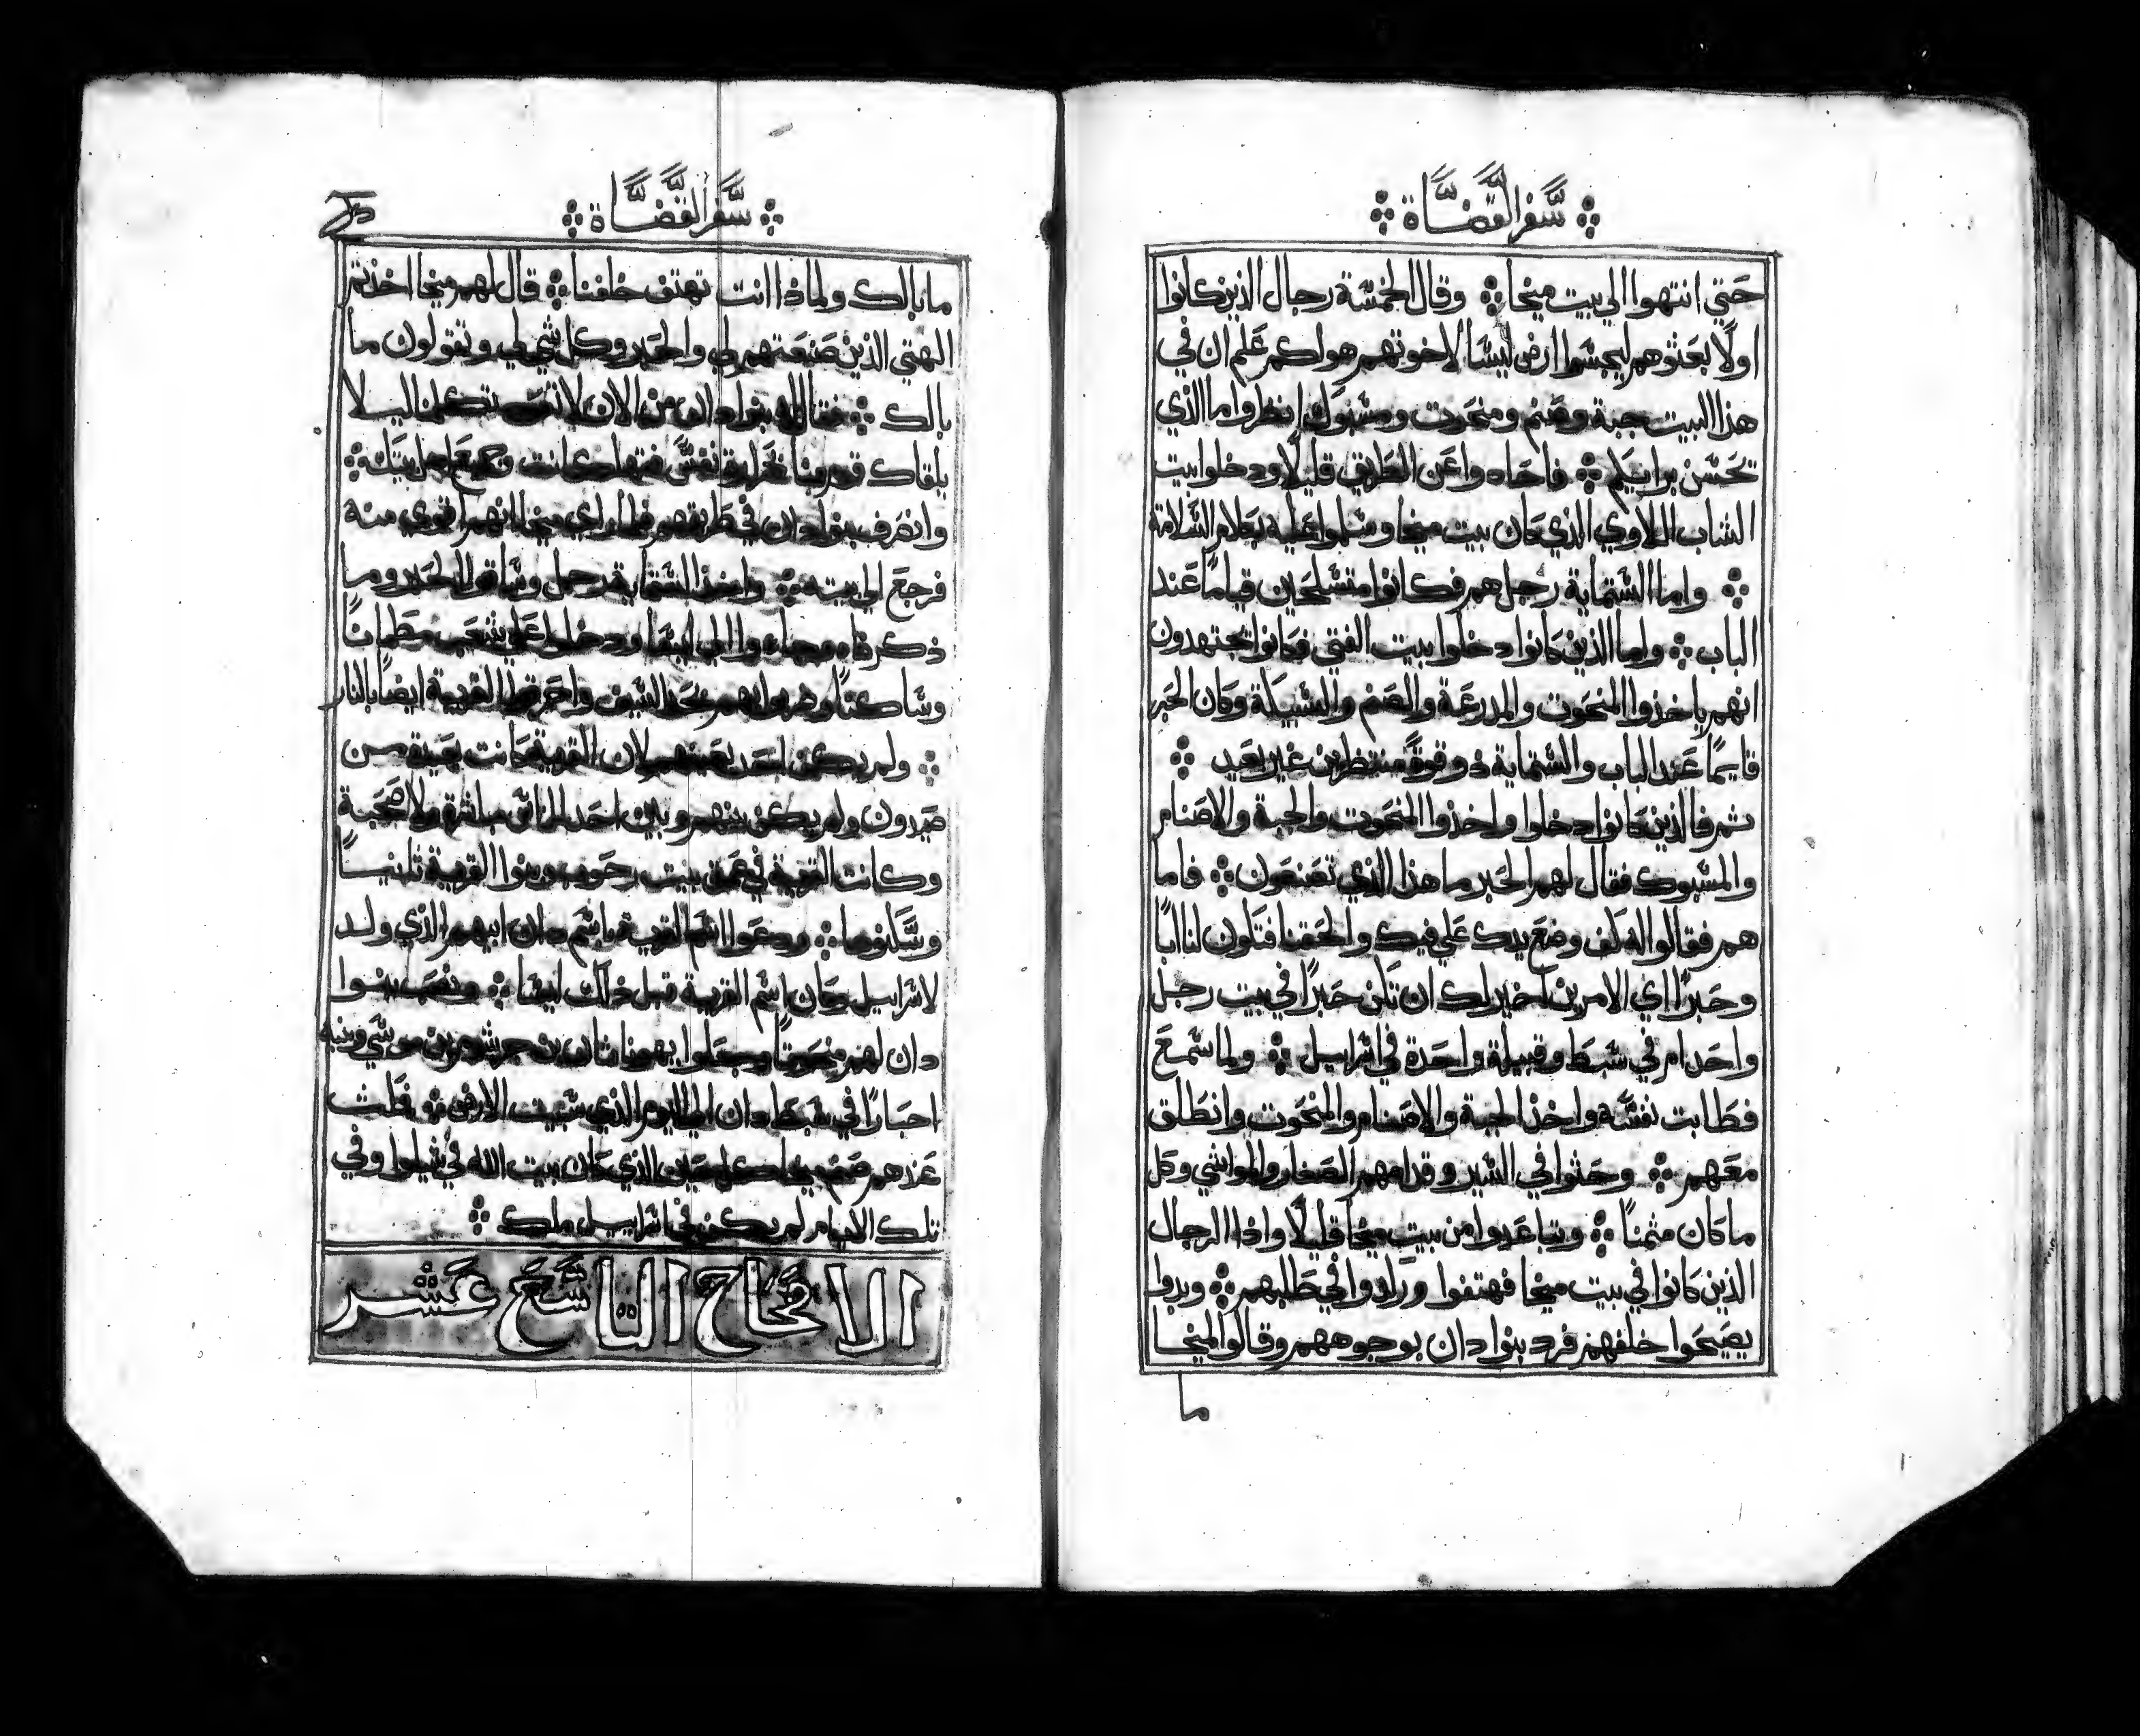 سفر القضاة
حتي انتهوا الي بيت ميخا وقال الخمسة رجال الذين كانوا
اولًا بعثوهم ليجسوا ارض ليسا لاخوتهم هو لكم علم ان في
هذا البيت جبة وصنم ومنحوت ومسبوك انظروا ما الذي
تحسن برايكم فاحادوا عن الطريق قليلًا ودخلوا بيت
الشاب اللاوي الذي كان بيت ميخا وسلموا عليه بكلام السلامة
واما الستماية رجل هم فكانوا متسلحين قيامًا عند
الباب واما الذين كانوا دخلوا بيت الفتي فكانوا مجتهدون
انهم ياخذوا المنحوت والمدرعة والصنم والسبيكة وكان الحبر
قايمًا عند الباب والستماية ذو قوة منتظرين غير بعيد
ثم فالذين كانوا دخلوا واخذوا المنحوت والجبة والاصنام
والمسبوك فقال لهم الحبر ما هذا الذي تصنعون فاما
هم فقالوا له كف وضع يدك علي فيك والحقنا فتكون لنا ابًا
وحبرًا اي الامرين اخير لك ان تكن حبرًا في بيت رجل
واحد ام في سبط وقبيلة واحدة في اسراييل ولما سمع
فطابت نفسه واخذ الجبة والاصنام والمنحوت وانطلق
معهم وحثوا في السير وقدامهم الصغار والمواشي وكل
ما كان مثمنًا وتباعدوا من بيت ميخا قليلًا واذا الرجال
الذين كانوا في بيت ميخا فهتفوا وكدوا في طلبهم وبدوا
يصيحوا خلفهم فرد بنوا دان بوجوههم وقالوا لميخا
ما
سفر القضاة
ما بالك ولماذا انت تهتف خلفنا قال لهم ميخا اخذتم
الهتي الذين صنعتهم لي والحبر وكل شي لي وتقولون ما
بالك فقال له بنوا دان من الان لا تكلمنا ليلا
يلقاك قوم منا نفس فتهلك انت وجميع اهل بيتك
وانصرف بنوا دان في طريقهم فلما راي ميخا انهم اقوي منه
فرجع الي بيته واخذ الستماية رجل وساقوا الحبر وما
ذكرناه وجاءوا الي ليسا ودخلوا علي شعب مطمانًا
وساكنًا وضربوهم بحد السيف واحرقوا القرية ايضًا بالنار
ولم يكن احد يعينهم لان القرية كانت بعيدة من
صيدون ولم يكن بينهم وبين احد الناس مباشرة ولا صحبة
وكانت القرية في عمق بيت رحوب وبنوا القرية ثانيًا
وسكنوها ودعوا اسم القرية باسم دان ابيهم الذي ولد
لاسراييل وكان اسم القرية قبل ذلك ليسا ونصب بنوا
دان لهم منحوتًا وجعلوا يهوناثان بن جرشوم بن موسي وبنيه
احبارًا في سبط دان الي اليوم الذي سبيت الارض فلبث
عندهم صنم ميخا كل حين الذي كان بيت الله في شيلوا وفي
تلك الايام لم يكن في اسراييل ملك
الاصحاح التاسع عشر